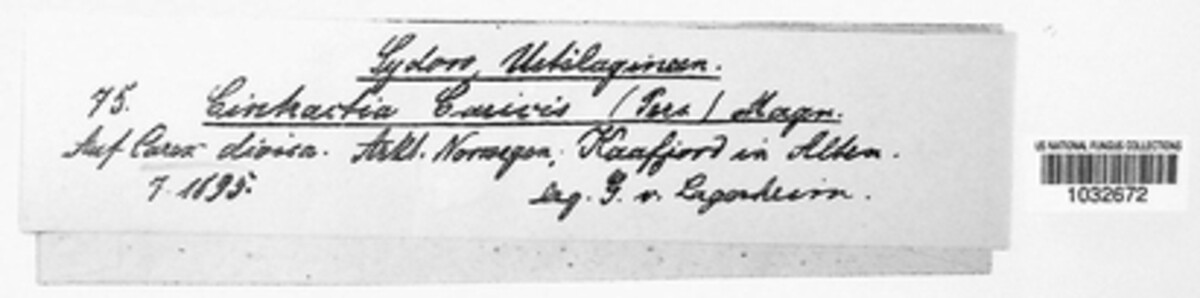 Sydow, Ustilagineen.
75. Cintractia Caricis (Pers.) Magn.
Auf Carex dioica. Arkt. Norwegen, Kaafjord in Alten.
7. 1895. leg. G. v. Lagerheim.
US NATIONAL FUNGUS COLLECTIONS
1032672